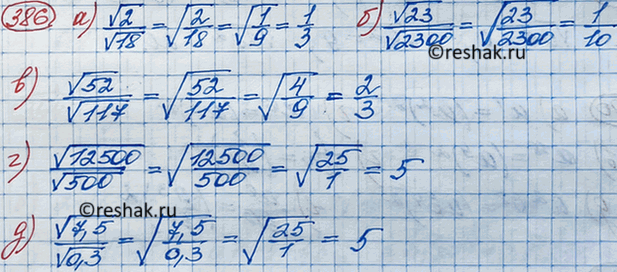 386. а) √2/√18 = √(2/18) = √(1/9) = 1/3 б) √23/√2300 = √(23/2300) = 1/10
в) √52/√117 = √(52/117) = √(4/9) = 2/3
г) √12500/√500 = √(12500/500) = √(25/1) = 5
©reshak.ru
©reshak.ru
д) √7,5/√0,3 = √(7,5/0,3) = √(25/1) = 5